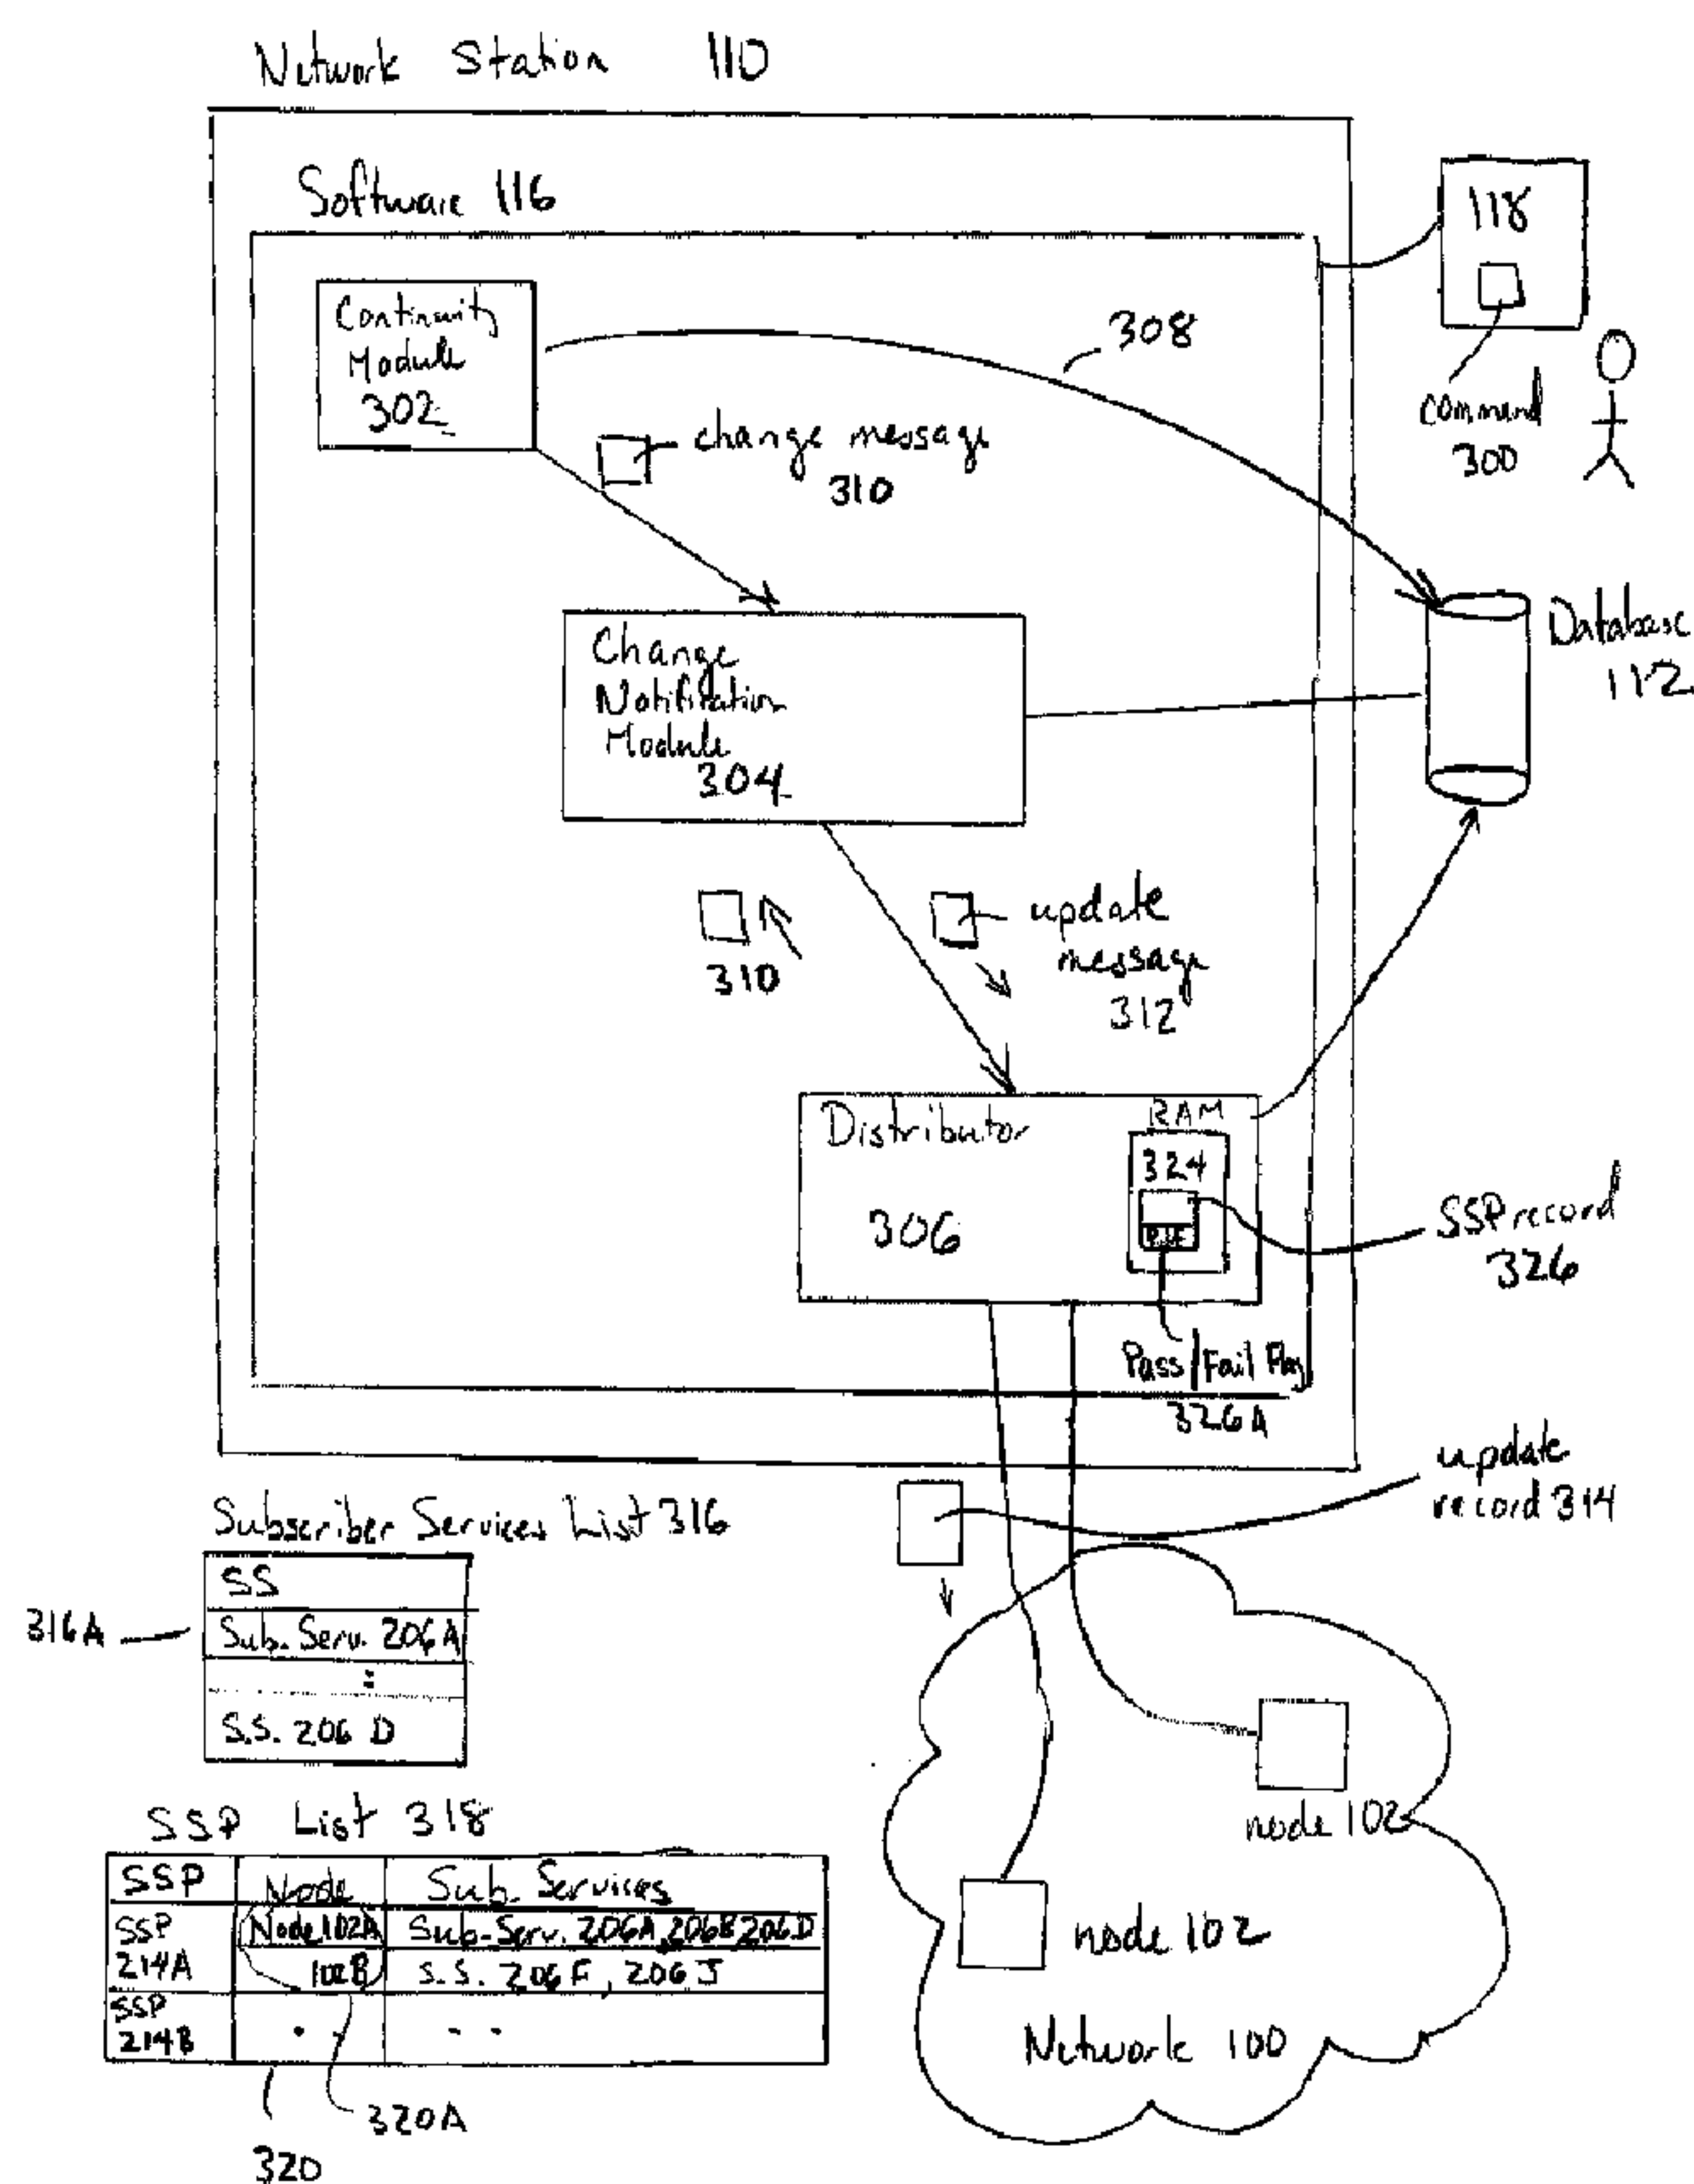 Network Station 110
Software 116
118
command
300
Continuity
Module
302
308
change message
310
Database
112
Change
Notification
Module
304
310
update
message
312
Distributor
306
RAM
324
P/F
SSP record
326
Pass/Fail Flag
326A
update
record 314
Subscriber Services List 316
SS
316A
Sub. Serv. 206A
S.S. 206 D
SSP List 318
SSP Node Sub. Services
SSP
214A
Node 102A Sub-Serv. 206A, 206B, 206D
102B S.S. 206 F, 206 J
SSP
214B
320A
320
node 102
node 102
Network 100